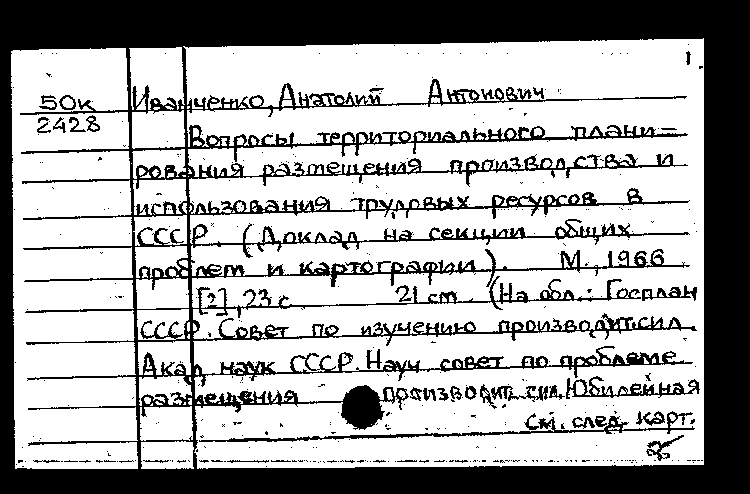 1
50к
2428
Иванченко, Анатолий Антонович
Вопросы территориального плани=
рования размещения производства и
использования трудовых ресурсов в
СССР. (Доклад на секции общих
проблем и картографии). М., 1966
[2], 23 с 21 cm (На обл.: Госплан
СССР. Совет по изучению производит.сил.
Акад. наук СССР. Науч совет по проблеме
размещения производит. сил. Юбилейная
см. след. карт.